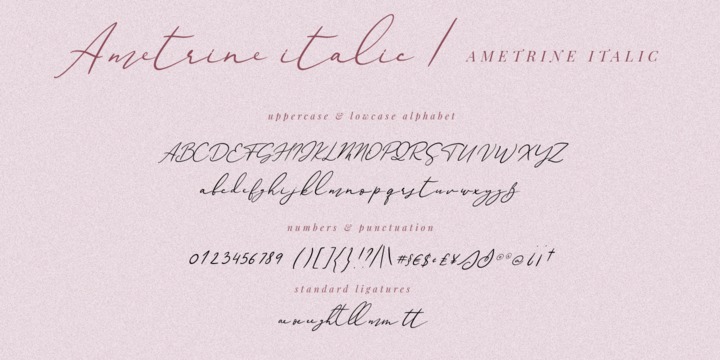 Ametrine italic / AMETRINE ITALIC
uppercase & lowcase alphabet
ABCDEFGHIJKLMNOPQRSTUVWXYZ
abcdefghijklmnopqrstuvwxyzß
numbers & punctuation
0123456789 ()[]{}!?/|\#§€$¢£¥
standard ligatures
ll mm tt